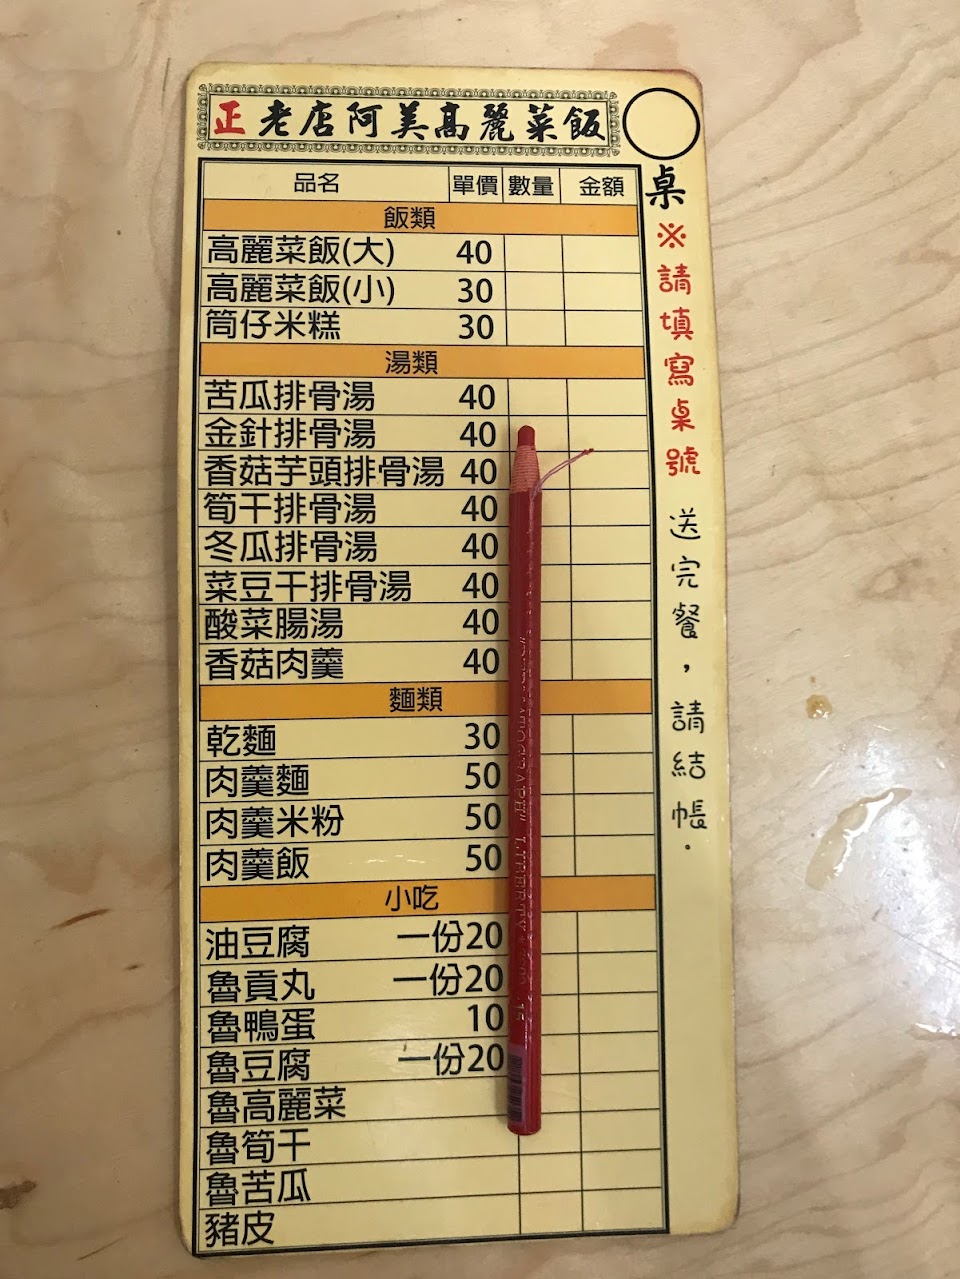 正老店阿美高麗菜飯
桌
品名 單價 數量 金額
飯類
高麗菜飯(大) 40
高麗菜飯(小) 30
筒仔米糕 30
湯類
苦瓜排骨湯 40
金針排骨湯 40
香菇芋頭排骨湯 40
筍干排骨湯 40
冬瓜排骨湯 40
菜豆干排骨湯 40
酸菜腸湯 40
香菇肉羹 40
麵類
乾麵 30
肉羹麵 50
肉羹米粉 50
肉羹飯 50
小吃
油豆腐 一份20
魯貢丸 一份20
魯鴨蛋 10
魯豆腐 一份20
魯高麗菜
魯筍干
魯苦瓜
豬皮
※請填寫桌號
送完餐，請結帳.
LIBERTY